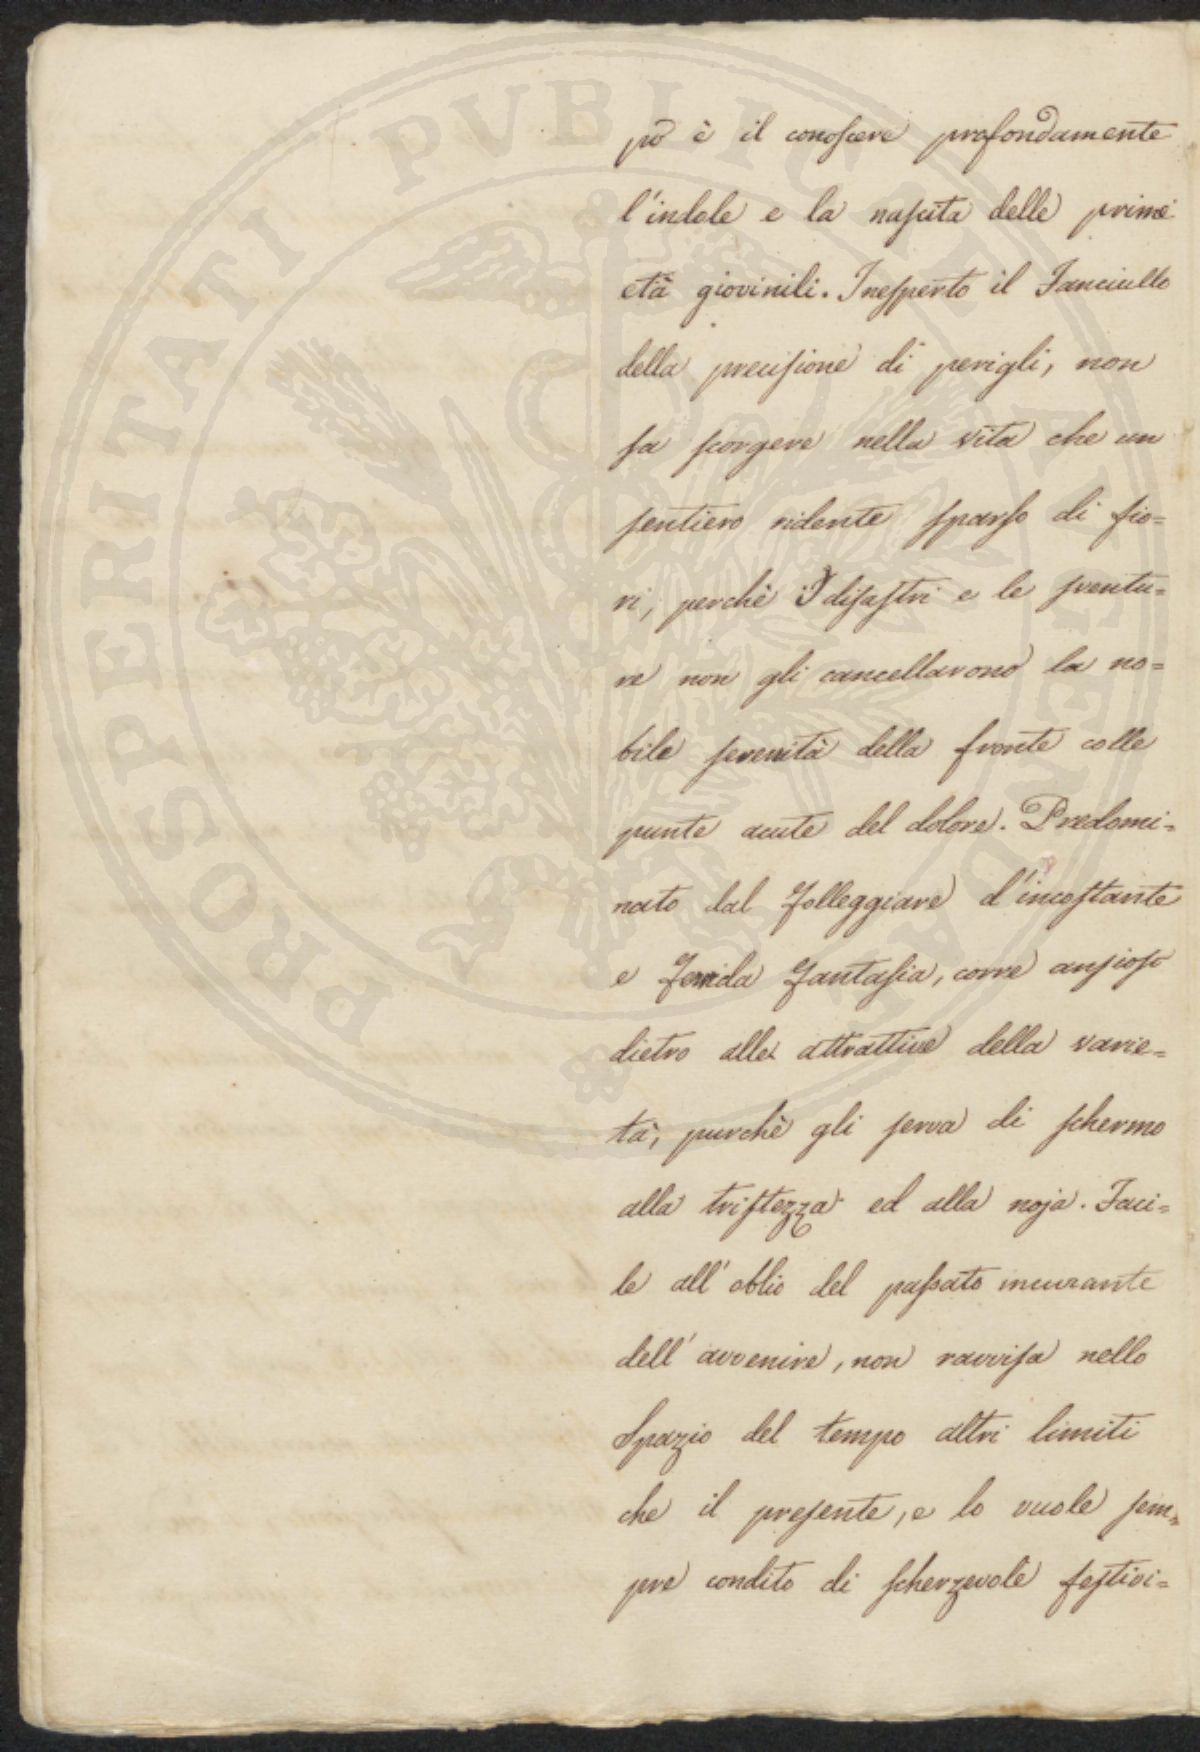 pò è il conoscere profondamente
l'indole e la nascita delle prime
età giovinili. Inesperto il Fanciullo
della precisione di perigli, non
sa scorgere nella vita che un
sentiero ridente sparso di fio=
ri, perchè I disastri e le sventu=
re non gli cancellarono la no=
bile serenità della fronte colle
punte acute del dolore. Predomi=
nato dal folleggiare d'incostante
e fervida fantasia, corre ansioso
dietro alle attrattive della varie=
tà, purchè gli serva di schermo
alla tristezza ed alla noja. Faci=
le all'oblio del passato incurante
dell'avvenire, non ravvisa nello
Spazio del tempo altri limiti
che il presente, e lo vuole sem=
pre condito di scherzevole festivi=
PROSPERITATI PVBLICAE AVGENDAE